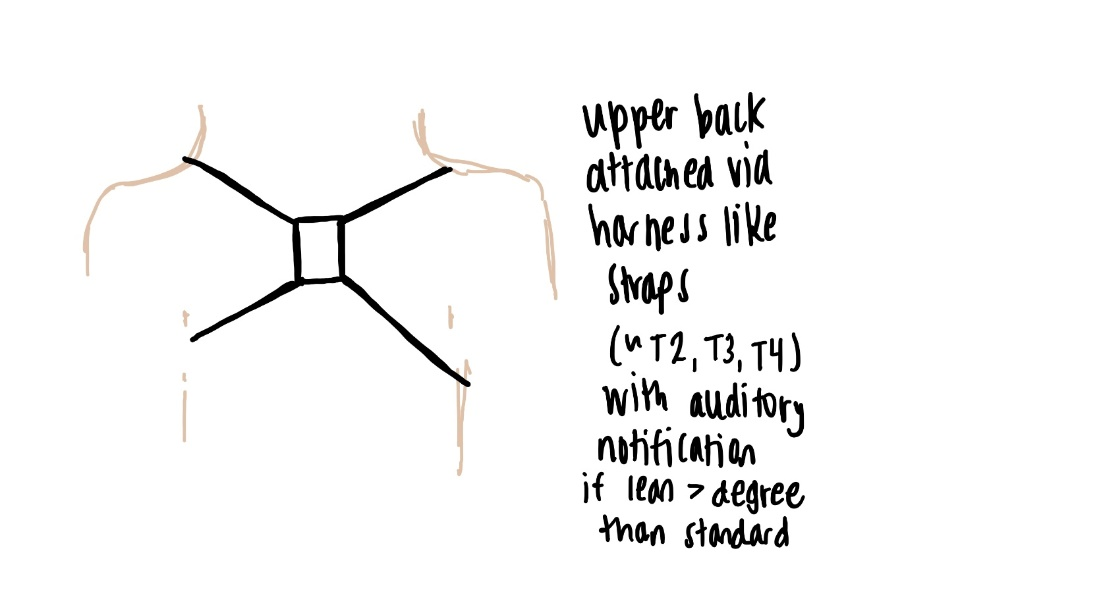 upper back
attached via
harness like
straps
(~ T2, T3, T4)
with auditory
notification
if lean > degree
than standard